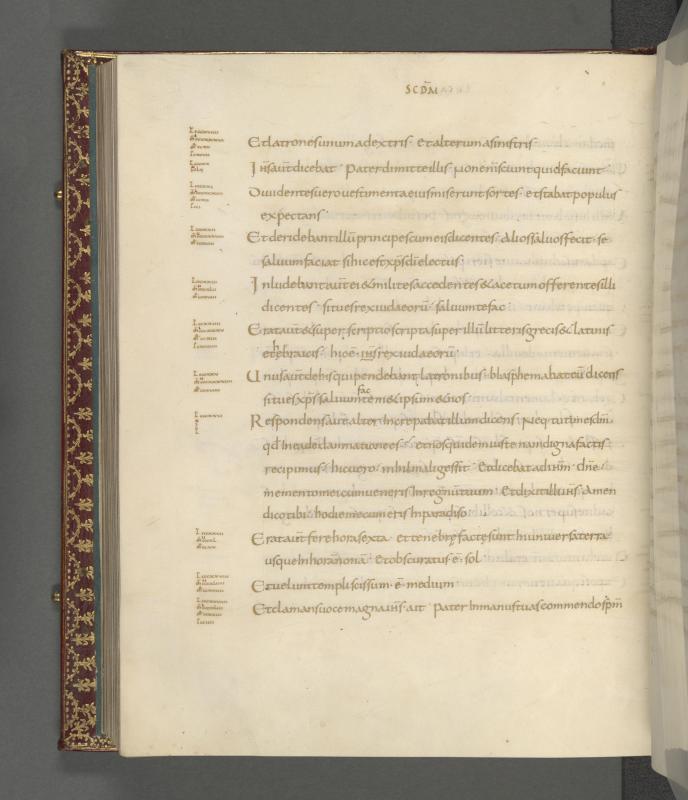 SCDM
Et latrones unum adextris · et alterum asinistris ·
Ihs aut dicebat · Pater dimitte illis · non enim sciunt quid faciunt
Diuidentes uero uestimenta eius miserunt sortes · et stabat populus
expectans ·
Et deridebant illū principes cum eis dicentes · Alios saluos fecit · se
saluum faciat si hic est xps di electus ·
Inludebant aut ei & milites accedentes & acetum offerentes illi
dicentes · si tu es rex iudaeorū · saluum te fac ·
Erat aut & super scriptio scripta super illū litteris grecis & latinis
et hebraicis · hic ē ihs rex iudaeorū ·
Unus aut de his qui pendebant latronibus · blasphemabat eū dicens
si tu es xps saluum fac temet ipsum & nos ·
Respondens aute alter increpabat illum dicens · Neq tu times dm
qd in eadē damnatione es · et nos quidem iuste nam digna factis
recipimus · hic uero nihil mali gessit · Et dicebat ad ihm · dne
memento mei cum ueneris in regnū tuum · Et dixit illi ihs · Amen
dico tibi · hodie mecum eris in paradiso ·
Erat aut fere hora sexta · et tenebrę factę sunt in uniuersa terra
usque in horā nonā · et obscuratus ē sol
Et uelum templi scissum ē medium
Et clamans uoce magna ihs ait · Pater in manus tuas commendo spm